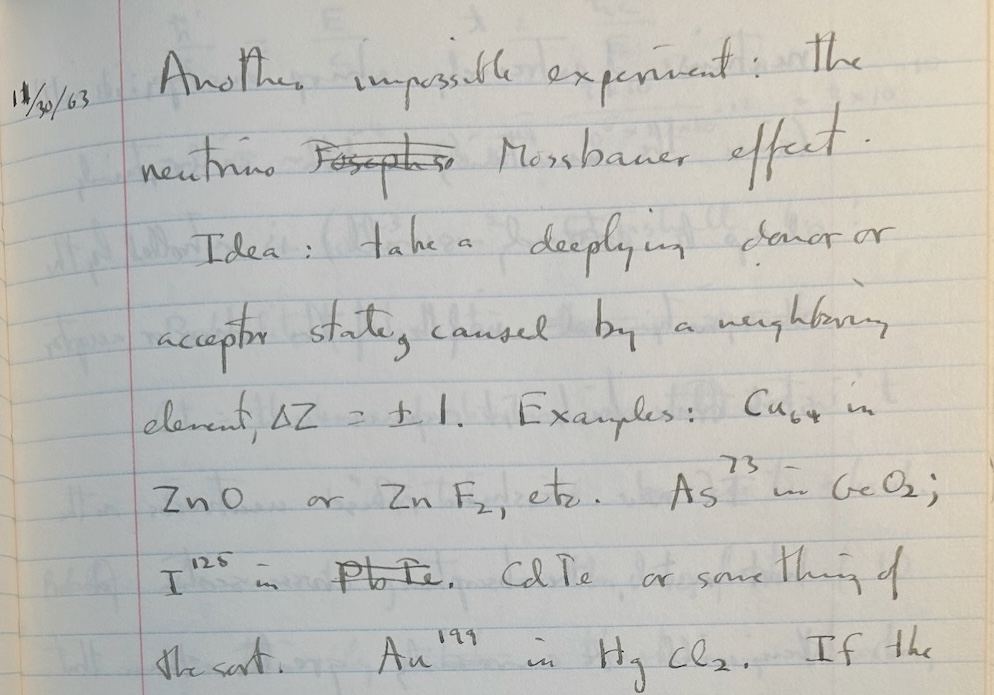 11/30/63 Another impossible experiment: the
neutrino Josephso Mossbauer effect.
Idea: take a deeplying donor or
acceptor state, caused by a neighboring
element, ΔZ = ± 1. Examples: Cu₆₄ in
ZnO or ZnF₂, etc. As⁷³ in GeO₂;
I¹²⁵ in PbTe. CdTe or something of
the sort. Au¹⁹⁹ in HgCl₂. If the